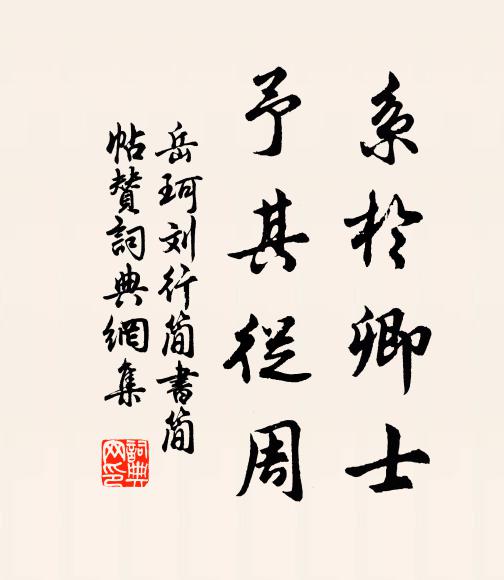 系於卿士
予其從周
岳珂刘行简書简
帖贊詞典網集
詞典
网印